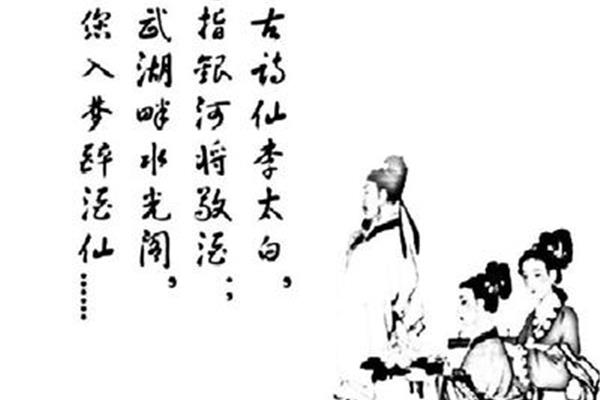 古诗仙李太白，
指銀河将敬酒；
武湖畔水光阁，
您入梦醉酒仙……